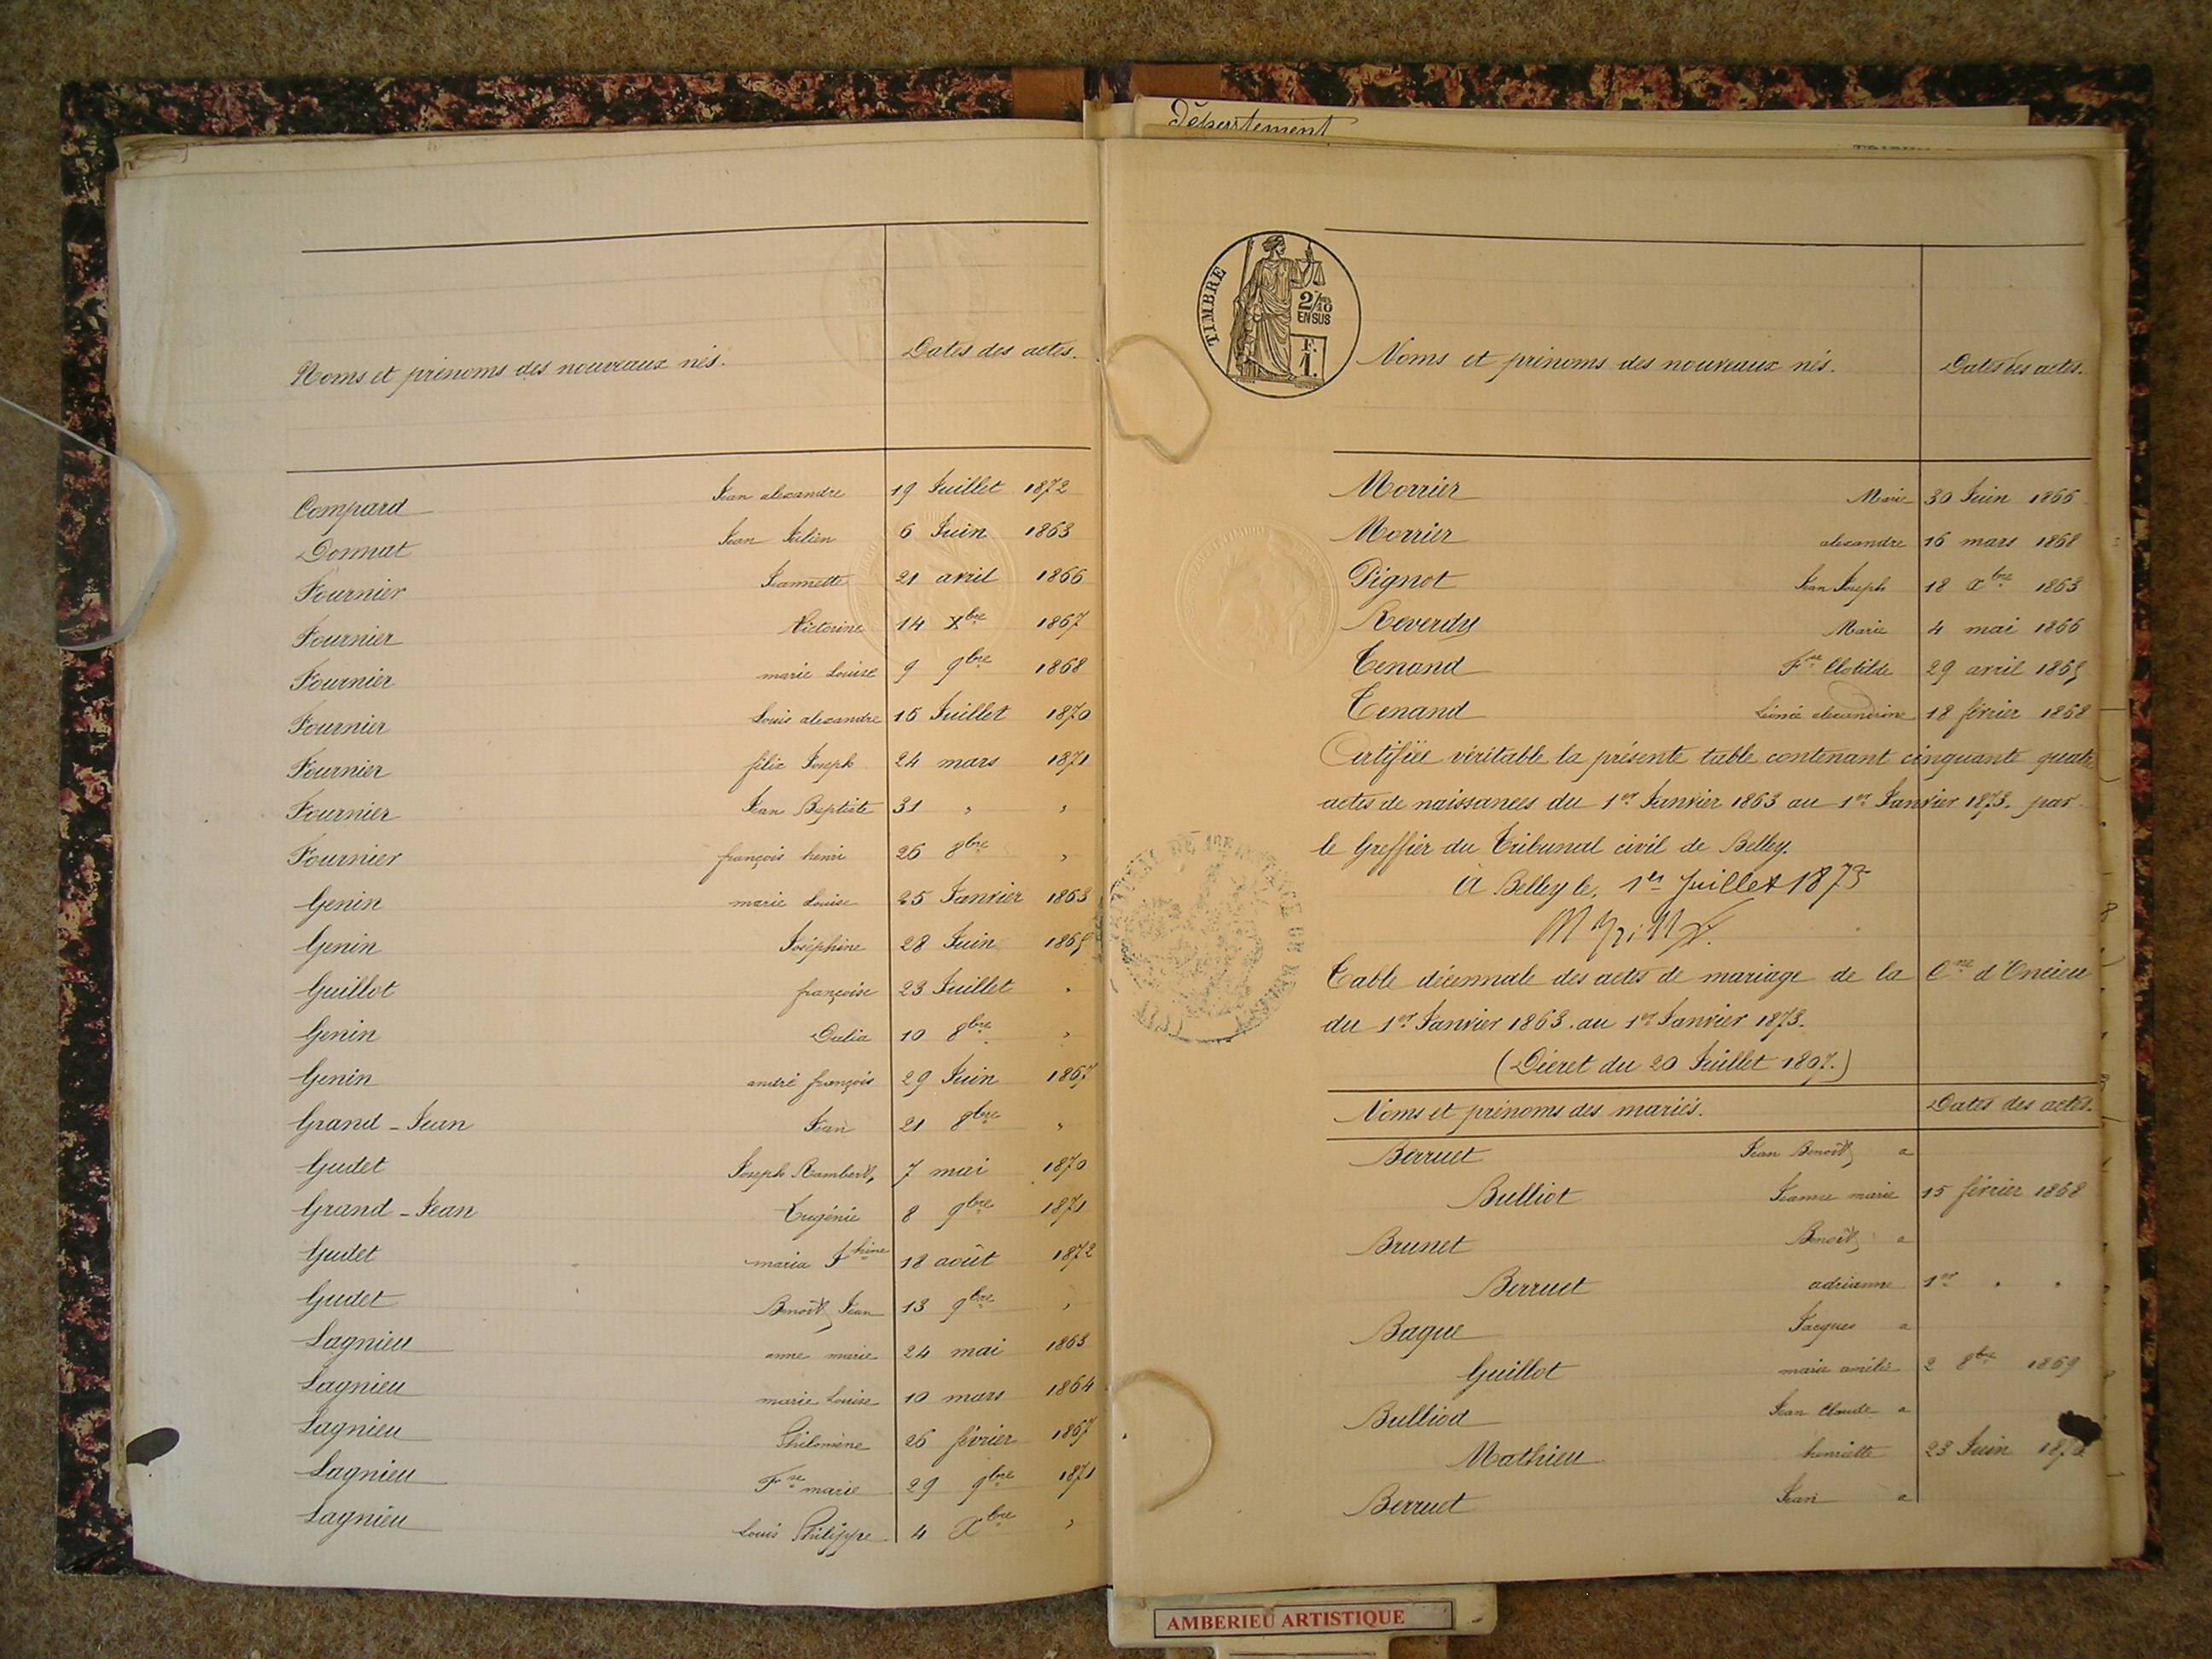 Noms et prénoms des nouveaux nés. Dates des actes.
Compard Jean alexandre 19 Juillet 1872
Donnat Jean Julien 6 Juin 1863
Fournier Jeannette 21 avril 1866
Fournier Victorine 14 Xbre 1867
Fournier marie Louise 9 9bre 1868
Fournier Louis alexandre 15 Juillet 1870
Fournier félix Joseph 24 mars 1871
Fournier Jean Baptiste 31 " "
Fournier françois henri 26 8bre "
Genin marie Louise 25 Janvier 1863
Genin Joséphine 28 Juin 1865
Guillot françoise 23 Juillet "
Genin Dalia 10 8bre "
Genin andré françois 29 Juin 1867
Grand-Jean Jean 21 8bre "
Gudet Joseph Rambert, 7 mai 1870
Grand-Jean Eugénie 8 9bre 1871
Gudet maria Jhine 18 août 1872
Gudet Benoît Jean 13 9bre "
Lagnieu anne marie 24 mai 1863
Lagnieu marie Louise 10 mars 1864
Lagnieu Philomène 26 février 1867
Lagnieu Fse marie 29 9bre 1871
Lagnieu Louis Philippe 4 Xbre "
Département
TIMBRE
2/10
EN SUS
F.
1.
Noms et prénoms des nouveaux nés. Dates des actes.
Morrier Marie 30 Juin 1866
Morrier alexandre 16 mars 1868
Pignot Jean Joseph 18 Xbre 1863
Reverdy Marie 4 mai 1866
Tenand Fse Clotilde 29 avril 1865
Tenand alexandrine 18 février 1868
Certifiée véritable la présente table contenant cinquante quatre
actes de naissances du 1er Janvier 1863 au 1er Janvier 1873. par
le Greffier du Tribunal civil de Belley.
A Belley le, 1er Juillet 1873
Table décennale des actes de mariage de la Cne d'Oncieu
du 1er Janvier 1863. au 1er Janvier 1873.
(Décret du 20 Juillet 1807.)
Noms et prénoms des mariés. Dates des actes.
Berruet Jean Benoît a
Bulliot Jeanne marie 15 février 1868
Brunet Benoît a
Berruet adrianne 1er " "
Bague Jacques a
Guillot marie amélie 2 8bre 1869
Bulliod Jean Claude a
Mathieu henriette 23 Juin
Berruet Jean a
AMBERIEU ARTISTIQUE